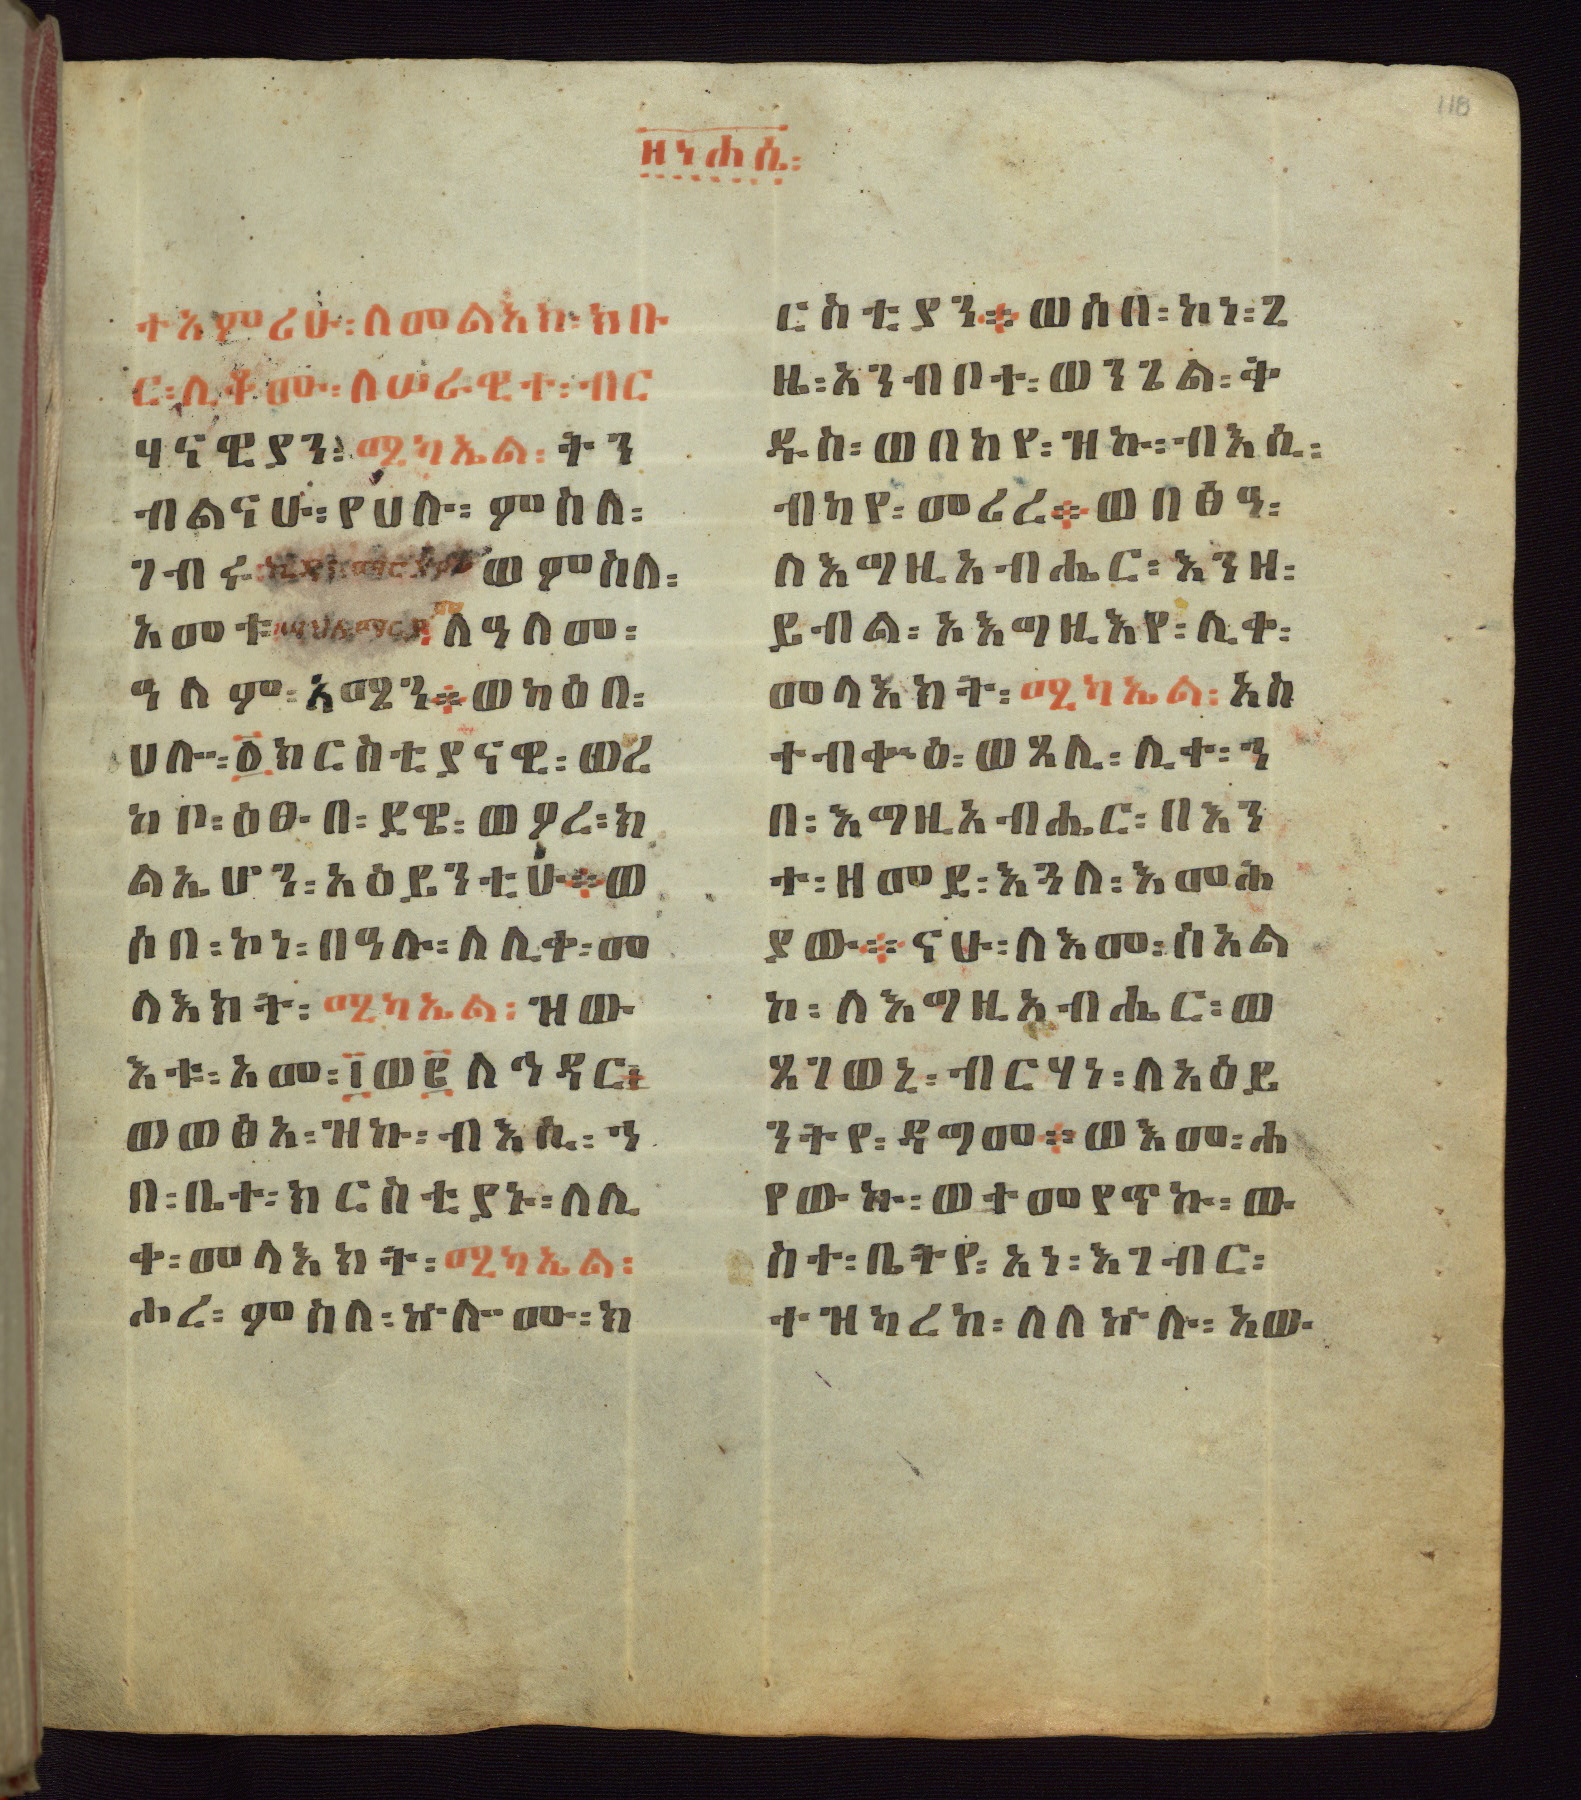 118
ዘነሐሴ፡
ተአምሪሁ፡ለመልአክ፡ክቡ
ር፡ሊቆሙ፡ለሠራዊተ፡ብር
ሃናዊያን፡ሚካኤል፡ትን
ብልናሁ፡የሀሉ፡ምስለ፡
ገብሩ፡ ወምስለ፡
አመቱ፡ ለዓለመ፡
ዓለም፡አሜን፨ወካዕበ፡
ሀሎ፡፩ክርስቲያናዊ፡ወረ
ከቦ፡ዕፁብ፡ደዌ፡ወዖረ፡ክ
ልኤሆን፡አዕይንቲሁ፨ወ
ሶበ፡ኮነ፡በዓሉ፡ለሊቀ፡መ
ላእክት፡ሚካኤል፡ዝው
እቱ፡አመ፡፲ወ፪ለኅዳር፡
ወወፅአ፡ዝኩ፡ብእሲ፡ኀ
በ፡ቤተ፡ክርስቲያኑ፡ለሊ
ቀ፡መላእክት፡ሚካኤል፡
ሐረ፡ምስለ፡ኵሎሙ፡ክ
ርስቲያን፨ወሶበ፡ኮነ፡ጊ
ዜ፡አንብቦተ፡ወንጌል፡ቅ
ዱስ፡ወበከየ፡ዝኩ፡ብእሲ፡
ብካየ፡መሪረ፨ወበፅዓ፡
ለእግዚአብሔር፡እንዘ፡
ይብል፡አእግዚእየ፡ሊቀ፡
መላእክት፡ሚካኤል፡አስ
ተብቍዕ፡ወጸሊ፡ሊተ፡ኀ
በ፡እግዚአብሔር፡በእን
ተ፡ዘመድ፡እጓለ፡እመሕ
ያው፨ናሁ፡ለእመ፡ስእል
ከ፡ለእግዚአብሔር፡ወ
ጸገወኒ፡ብርሃነ፡ለአዕይ
ንትየ፡ዳግመ፨ወእመ፡ሐ
የውኩ፡ወተመየጥኩ፡ው
ስተ፡ቤትየ፡አነ፡እገብር፡
ተዝካረከ፡ለለኵሉ፡አው